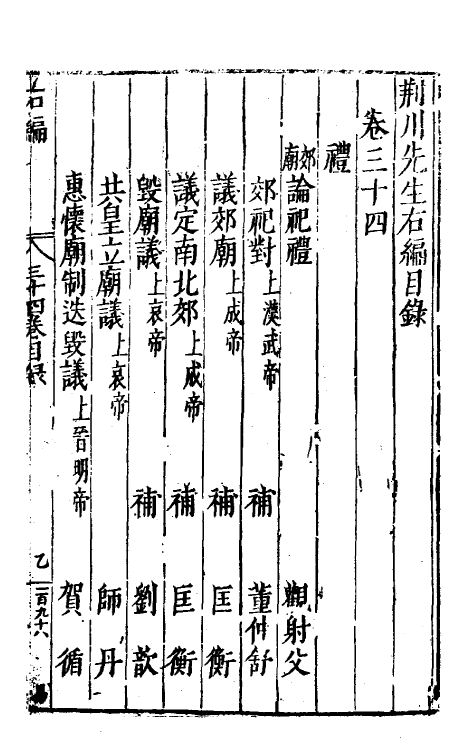 荆川先生右編目録
卷三十四
禮
郊廟 論祀禮 觀射父
郊祀對 上漢武帝 補 董仲舒
議郊廟 上成帝 補 匡衡
議定南北郊 上成帝 補 匡衡
毀廟議 上哀帝 補 劉歆
共皇立廟議 上哀帝 師丹
惠懷廟制迭毀議 上晉明帝 賀循
右編 三十四卷目録 乙 一百九十六